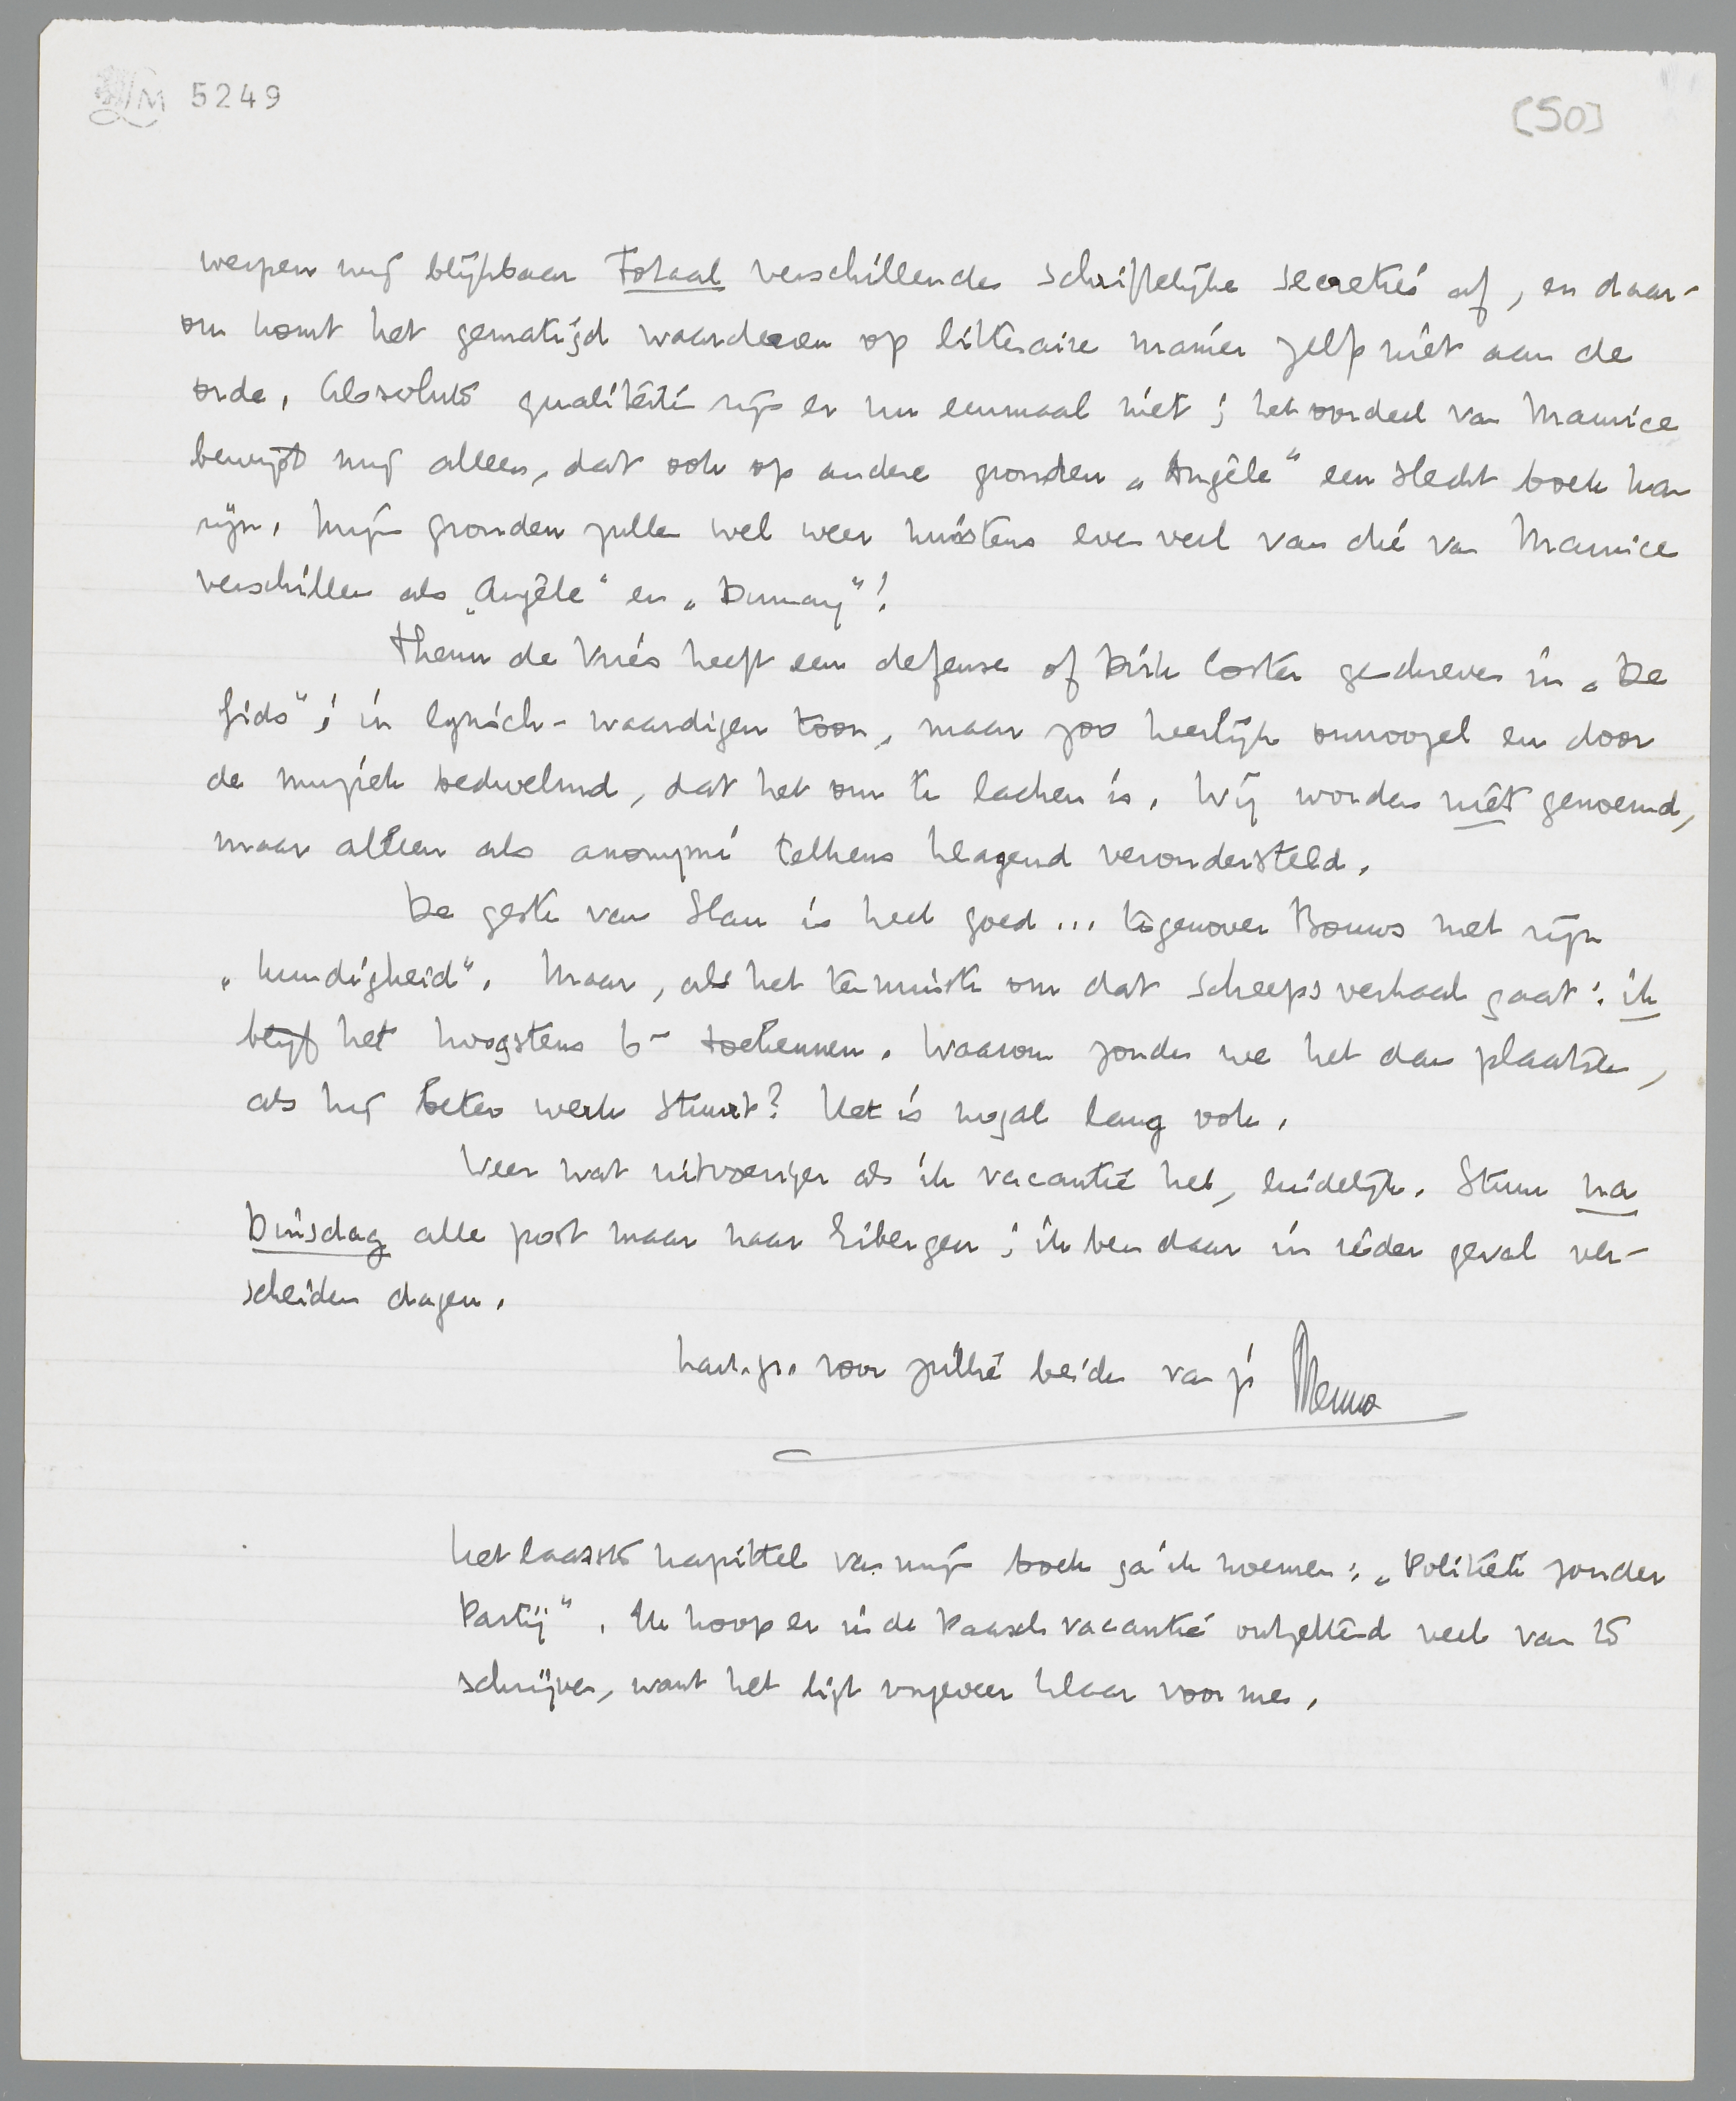 LM 5249
[50]
werpen wij blijkbaar totaal verschillende schriftelijke secreties af, en daar-
om komt het gematigd waardeeren op litteraire manier zelf niet aan de
orde. Absolute qualiteiten zijn er nu eenmaal niet; het oordeel van Maurice
bewijst mij alleen, dat ook op andere gronden „Angèle“ een slecht boek kan
zijn. Mijn gronden zullen wel weer minstens even veel van die van Maurice
verschillen als „Angèle“ en „Dumay“!
Theun de Vries heeft een defense of Dirk Coster geschreven in „De
Gids“; in lyrisch-waardigen toon, maar zoo heerlijk onnoozel en door
de muziek bedwelmd, dat het om te lachen is. Wij worden niet genoemd,
maar alleen als anonymi telkens klagend verondersteld.
De geste van Slau is heel goed... tegenover Bouws met zijn
„kundigheid“. Maar, als het tenminste om dat scheepsverhaal gaat: ik
blijf het hoogstens 6- toekennen. Waarom zouden we het dan plaatsen,
als hij beter werk stuurt? Het is nogal lang ook.
Weer wat uitvoeriger als ik vacantie heb, eindelijk. Stuur na
Dinsdag alle post maar naar Eibergen; ik ben daar in ieder geval ver-
scheiden dagen.
hart. gr. voor jullie beiden van je Menno
het laatste kapittel van mijn boek ga ik noemen: „Politiek zonder
Partij“. Ik hoop er in de Paaschvacantie ontzettend veel van te
schrijven, want het ligt ongeveer klaar voor me.